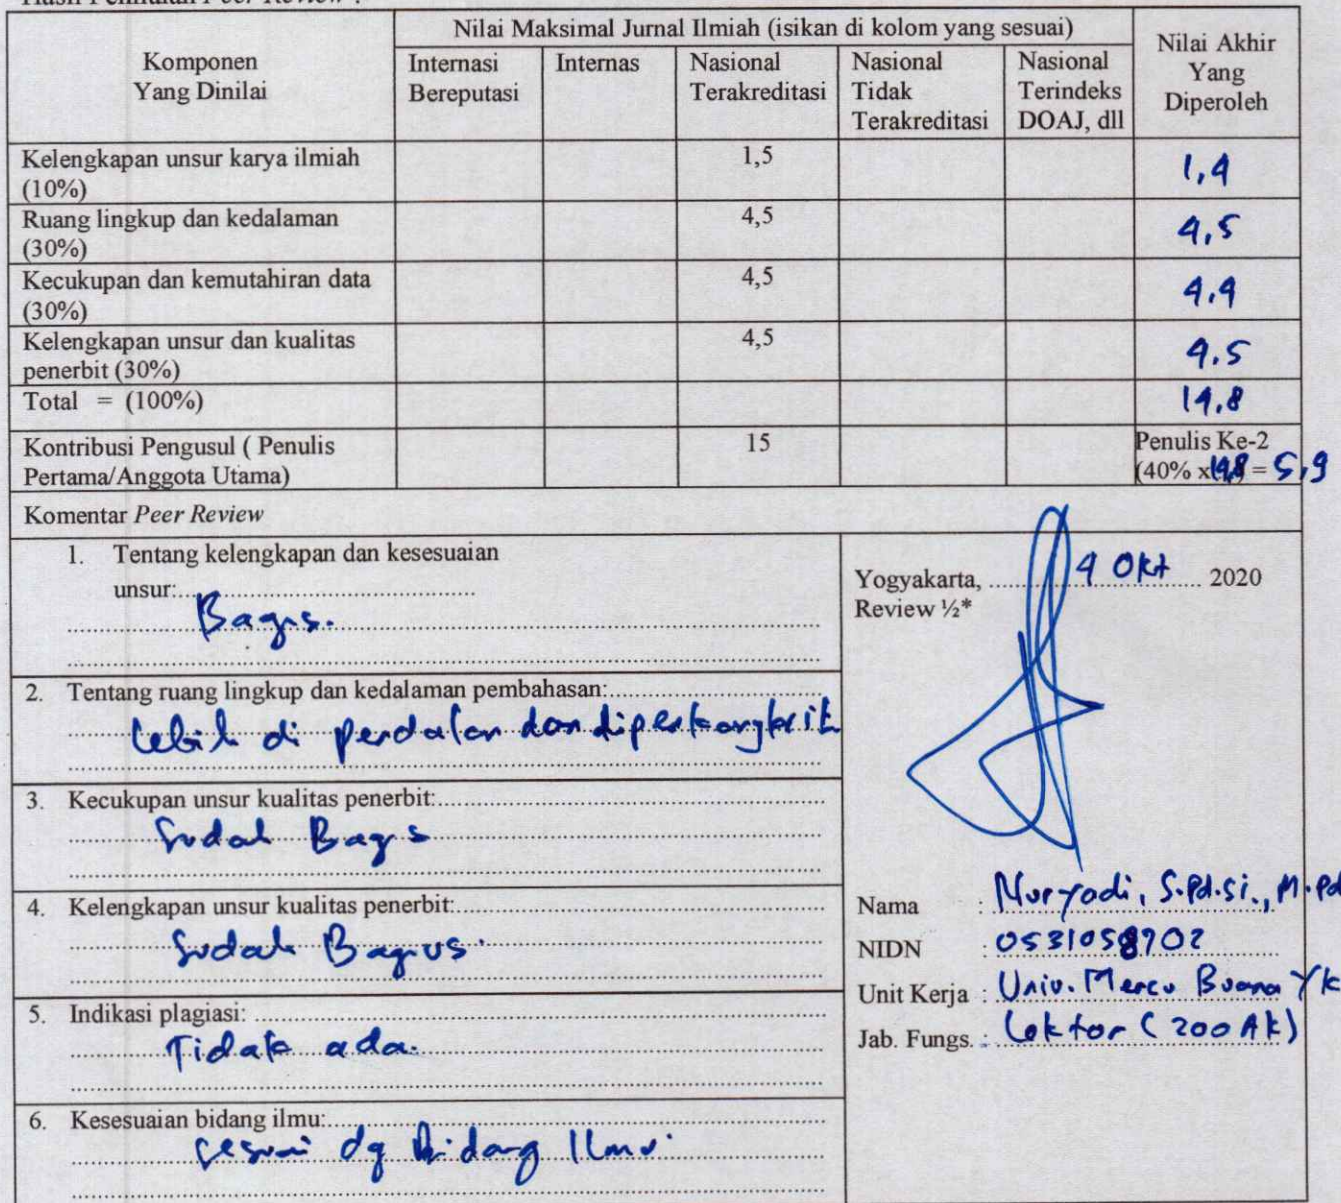 Hasil Penilaian Peer Review :
Komponen Yang Dinilai
Nilai Maksimal Jurnal Ilmiah (isikan di kolom yang sesuai)
Nilai Akhir Yang Diperoleh
Internasi Bereputasi
Internas
Nasional Terakreditasi
Nasional Tidak Terakreditasi
Nasional Terindeks DOAJ, dll
Kelengkapan unsur karya ilmiah (10%)
1,5
1,4
Ruang lingkup dan kedalaman (30%)
4,5
4,5
Kecukupan dan kemutahiran data (30%)
4,5
4,4
Kelengkapan unsur dan kualitas penerbit (30%)
4,5
4.5
Total = (100%)
14,8
Kontribusi Pengusul ( Penulis Pertama/Anggota Utama)
15
Penulis Ke-2
(40% x 14,8) = 5,9
Komentar Peer Review
1. Tentang kelengkapan dan kesesuaian
unsur:
Bagus.
2. Tentang ruang lingkup dan kedalaman pembahasan:
Lebih di perdalam dan
3. Kecukupan unsur kualitas penerbit:
Sudah Bagus
4. Kelengkapan unsur kualitas penerbit:
Sudah Bagus.
5. Indikasi plagiasi:
Tidak ada.
6. Kesesuaian bidang ilmu:
sesuai dg Bidang Ilmu.
Yogyakarta, 4 Okt 2020
Review ½*
Nama : Nuryadi, S.Pd.Si., M.Pd
NIDN : 0531058902
Unit Kerja : Univ. Mercu Buana Yk
Jab. Fungs. : Lektor (200 Ak)